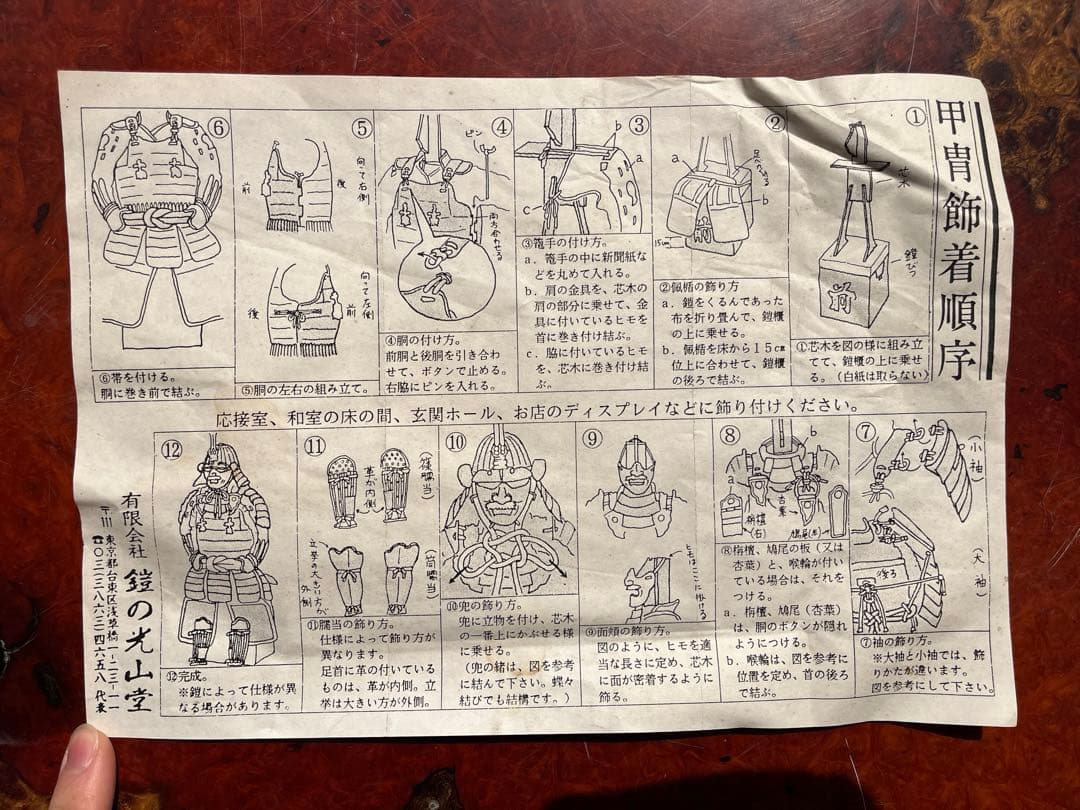 甲冑飾着順序
①
芯木
鎧びつ
①芯木を図の様に組み立
てて、鎧櫃の上に乗せ
る。（白紙は取らない）
②
a
b
15cm
②佩楯の飾り方
a．鎧をくるんであった
布を折り畳んで、鎧櫃
の上に乗せる。
b．佩楯を床から１５cm
位上に合わせて、鎧櫃
の後ろで結ぶ。
③
b
a
c
③篭手の付け方。
a．篭手の中に新聞紙な
どを丸めて入れる。
b．肩の金具を、芯木の
肩の部分に乗せて、金
具に付いているヒモを
首に巻き付け結ぶ。
c．脇に付いているヒモ
を、芯木に巻き付け結
ぶ。
④
ピン
両方合わせる
④胴の付け方。
前胴と後胴を引き合わ
せて、ボタンで止める。
右脇にピンを入れる。
⑤
向って右側
前
後
向って左側
後
前
⑤胴の左右の組み立て。
⑥
⑥帯を付ける。
胴に巻き前で結ぶ。
応接室、和室の床の間、玄関ホール、お店のディスプレイなどに飾り付けください。
⑦
（小袖）
（大袖）
後ろ
⑦袖の飾り方。
※大袖と小袖では、飾
りかたが違います。
図を参考にして下さい。
⑧
b
a
杏葉
栴檀
（右）
鳩尾(左)
⑧栴檀、鳩尾の板（又は
杏葉）と、喉輪が付い
ている場合は、それを
つける。
a．栴檀、鳩尾（杏葉）
は、胴のボタンが隠れ
るようにつける。
b．喉輪は、図を参考に
位置を定め、首の後ろ
で結ぶ。
⑨
ヒモはここに掛ける
⑨面頬の飾り方。
図のように、ヒモを適
当な長さに定め、芯木
に面が密着するように
飾る。
⑩
⑩兜の飾り方。
兜に立物を付け、芯木
の一番上にかぶせる様
に乗せる。
（兜の緒は、図を参考
に結んで下さい。蝶々
結びでも結構です。）
⑪
革が内側
（篠臑当）
立挙の大きい方が
外側
（筒臑当）
⑪臑当の飾り方。
仕様によって飾り方が
異なります。
足首に革の付いている
ものは、革が内側。立
挙は大きい方が外側。
⑫
⑫完成。
※鎧によって仕様が異
なる場合があります。
有限会社 鎧の光山堂
〒111 東京都台東区浅草橋一-二三-一一
☎〇三(三八六三)四六五八 代表